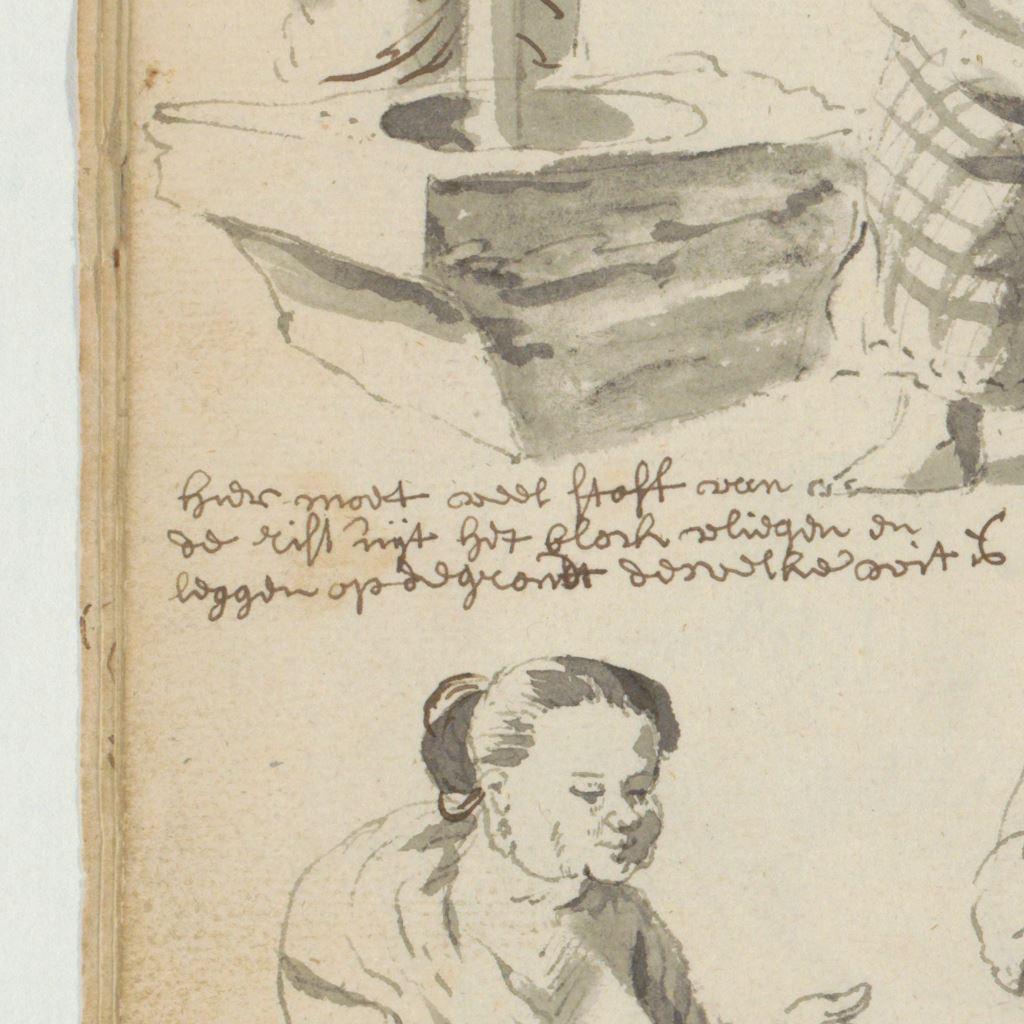 hier moet veel stoff van
de rist uijt het block vliegen en
leggen op de grondt dewelke wit is